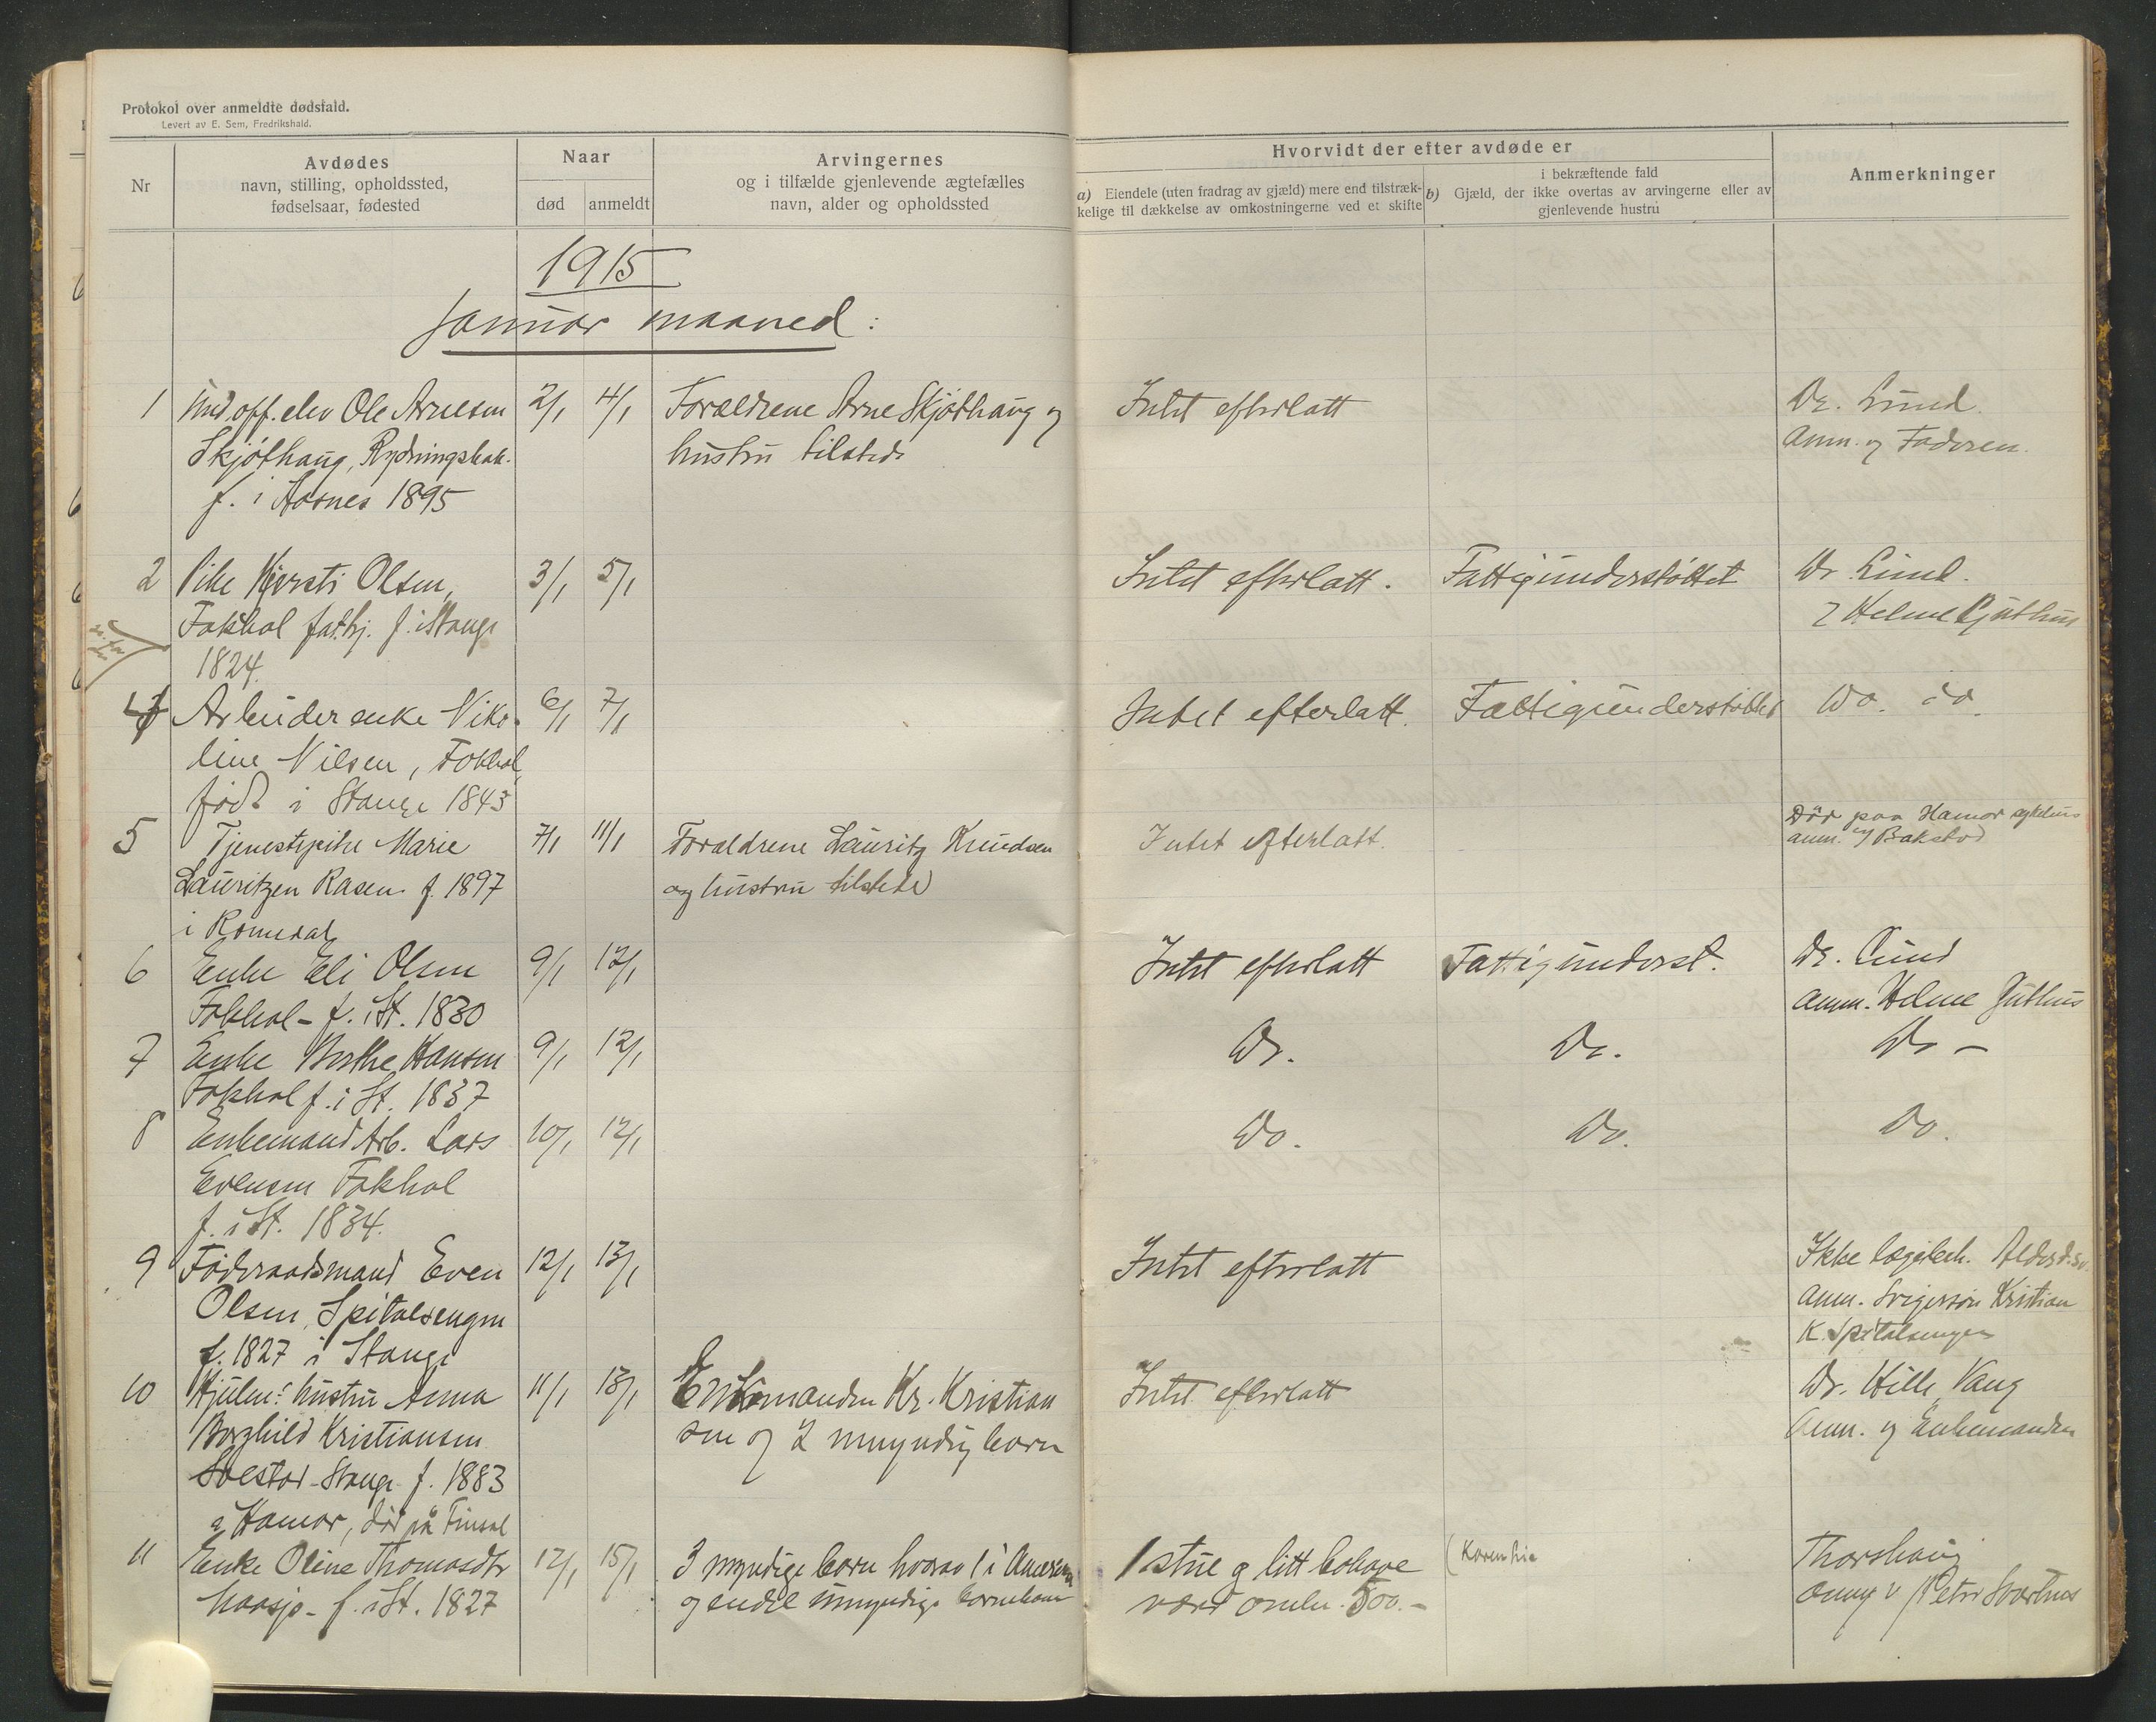 Protokol over anmeldte dødsfald.
Levert av E. Sem, Fredrikshald.
Nr
Avdødes
navn, stilling, opholdssted,
fødselsaar, fødested
Naar
død
anmeldt
Arvingernes
og i tilfælde gjenlevende ægtefælles
navn, alder og opholdssted
Hvorvidt der efter avdøde er
a) Eiendele (uten fradrag av gjæld) mere end tilstræk-
kelige til dækkelse av omkostningerne ved et skifte
i bekræftende fald
b) Gjæld, der ikke overtas av arvingerne eller av
gjenlevende hustru
Anmerkninger
1915
Januar maaned:
1 Und.off. elev Ole Arnesen 2/1 4/1 Forældrene Arne Skjøthaug og Intet efterlatt Dr. Lund.
Skjøthaug, hustru tilstede anm. og Faderen.
f. i Aasnes 1895
2 Pike Kjersti Olsen, 3/1 5/1 Intet efterlatt. Fattigunderstøttet Dr Lund.
Fokhol fathj. f. i Stange Helme
1824.
4 Arbeider enke Niko- 6/1 7/1 Intet efterlatt. Fattigunderstøttet Do. do.
line Nilsen, Fokhol,
født i Stange 1843
5 Tjenestepike Marie 7/1 11/1 Forældrene Lauritz Knudsen Intet efterlatt. Dør paa Hamar sykehus
Lauritzen Rasen f. 1897 og hustru tilstede anm. Bakstad
i Romedal
6 Enke Eli Olsen 9/1 12/1 Intet efterlatt Fattigunderst. Dr. Lund
Fokhol - f. i St. 1830 anm. Helme Juthus
7 Enke Berthe Hansen 9/1 12/1 Do. Do. Do -
Fokhol f. i St. 1837
8 Enkemand Arb. Lars 10/1 12/1 Do. Do. Do.
Evensen Fokhol
f. i St. 1834.
9 Føderaadsmand Even 12/1 13/1 Intet efterlatt Ikke lægebeh.
Olsen, Spitalsengen anm. Svigersøn Kristian
f. 1827 i Stange K. Spitalsengen
10 Hjulm. hustru Anna 11/1 13/1 Enkemanden Kr. Kristian Intet efterlatt Dr. Hille Vang
Borghild Kristiansen sen og 2 umyndig børn Anm. og Enkemanden
Stange f. 1883
i Hamar, dør på Finsal
11 Enke Oline Thomasdtr 12/1 15/1 3 myndige børn hvorav 1 i Amerika 1 stue og litt bohave (Kaarenhie Thorshaug
f. i St. 1827 og endel umyndige børnebørn værd omkr. 500.- Petr